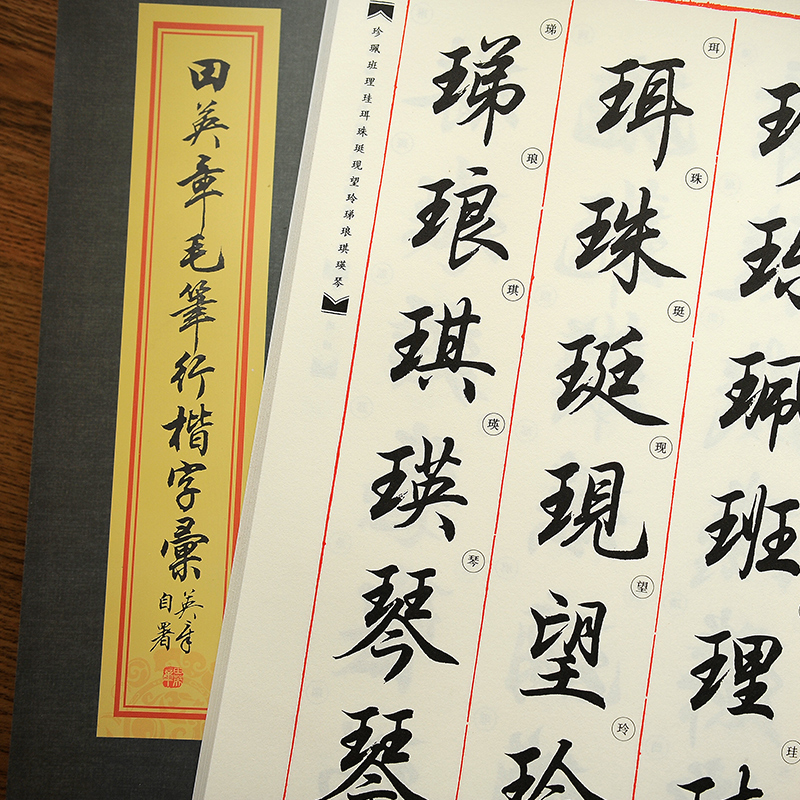 田英章毛筆行楷字彙
英章
自署
珍珮班理珪珥珠珽现望玲珶琅琪瑛琴
珍珮班理
珪
珥珠珽现望玲
珥珠珽現望玲
珶琅琪瑛琴
珶琅琪瑛琴琴